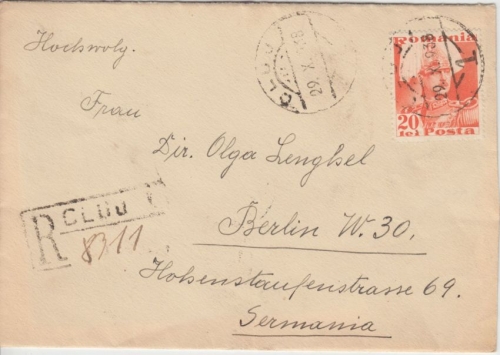 Hochwolg.
Frau
Dir. Olga Lenghel
Berlin W. 30.
Hohenstaufenstrasse 69.
Germania
R CLUJ
8311
CLUJ
29 X 38
Romania
20 lei Posta
29 X 938